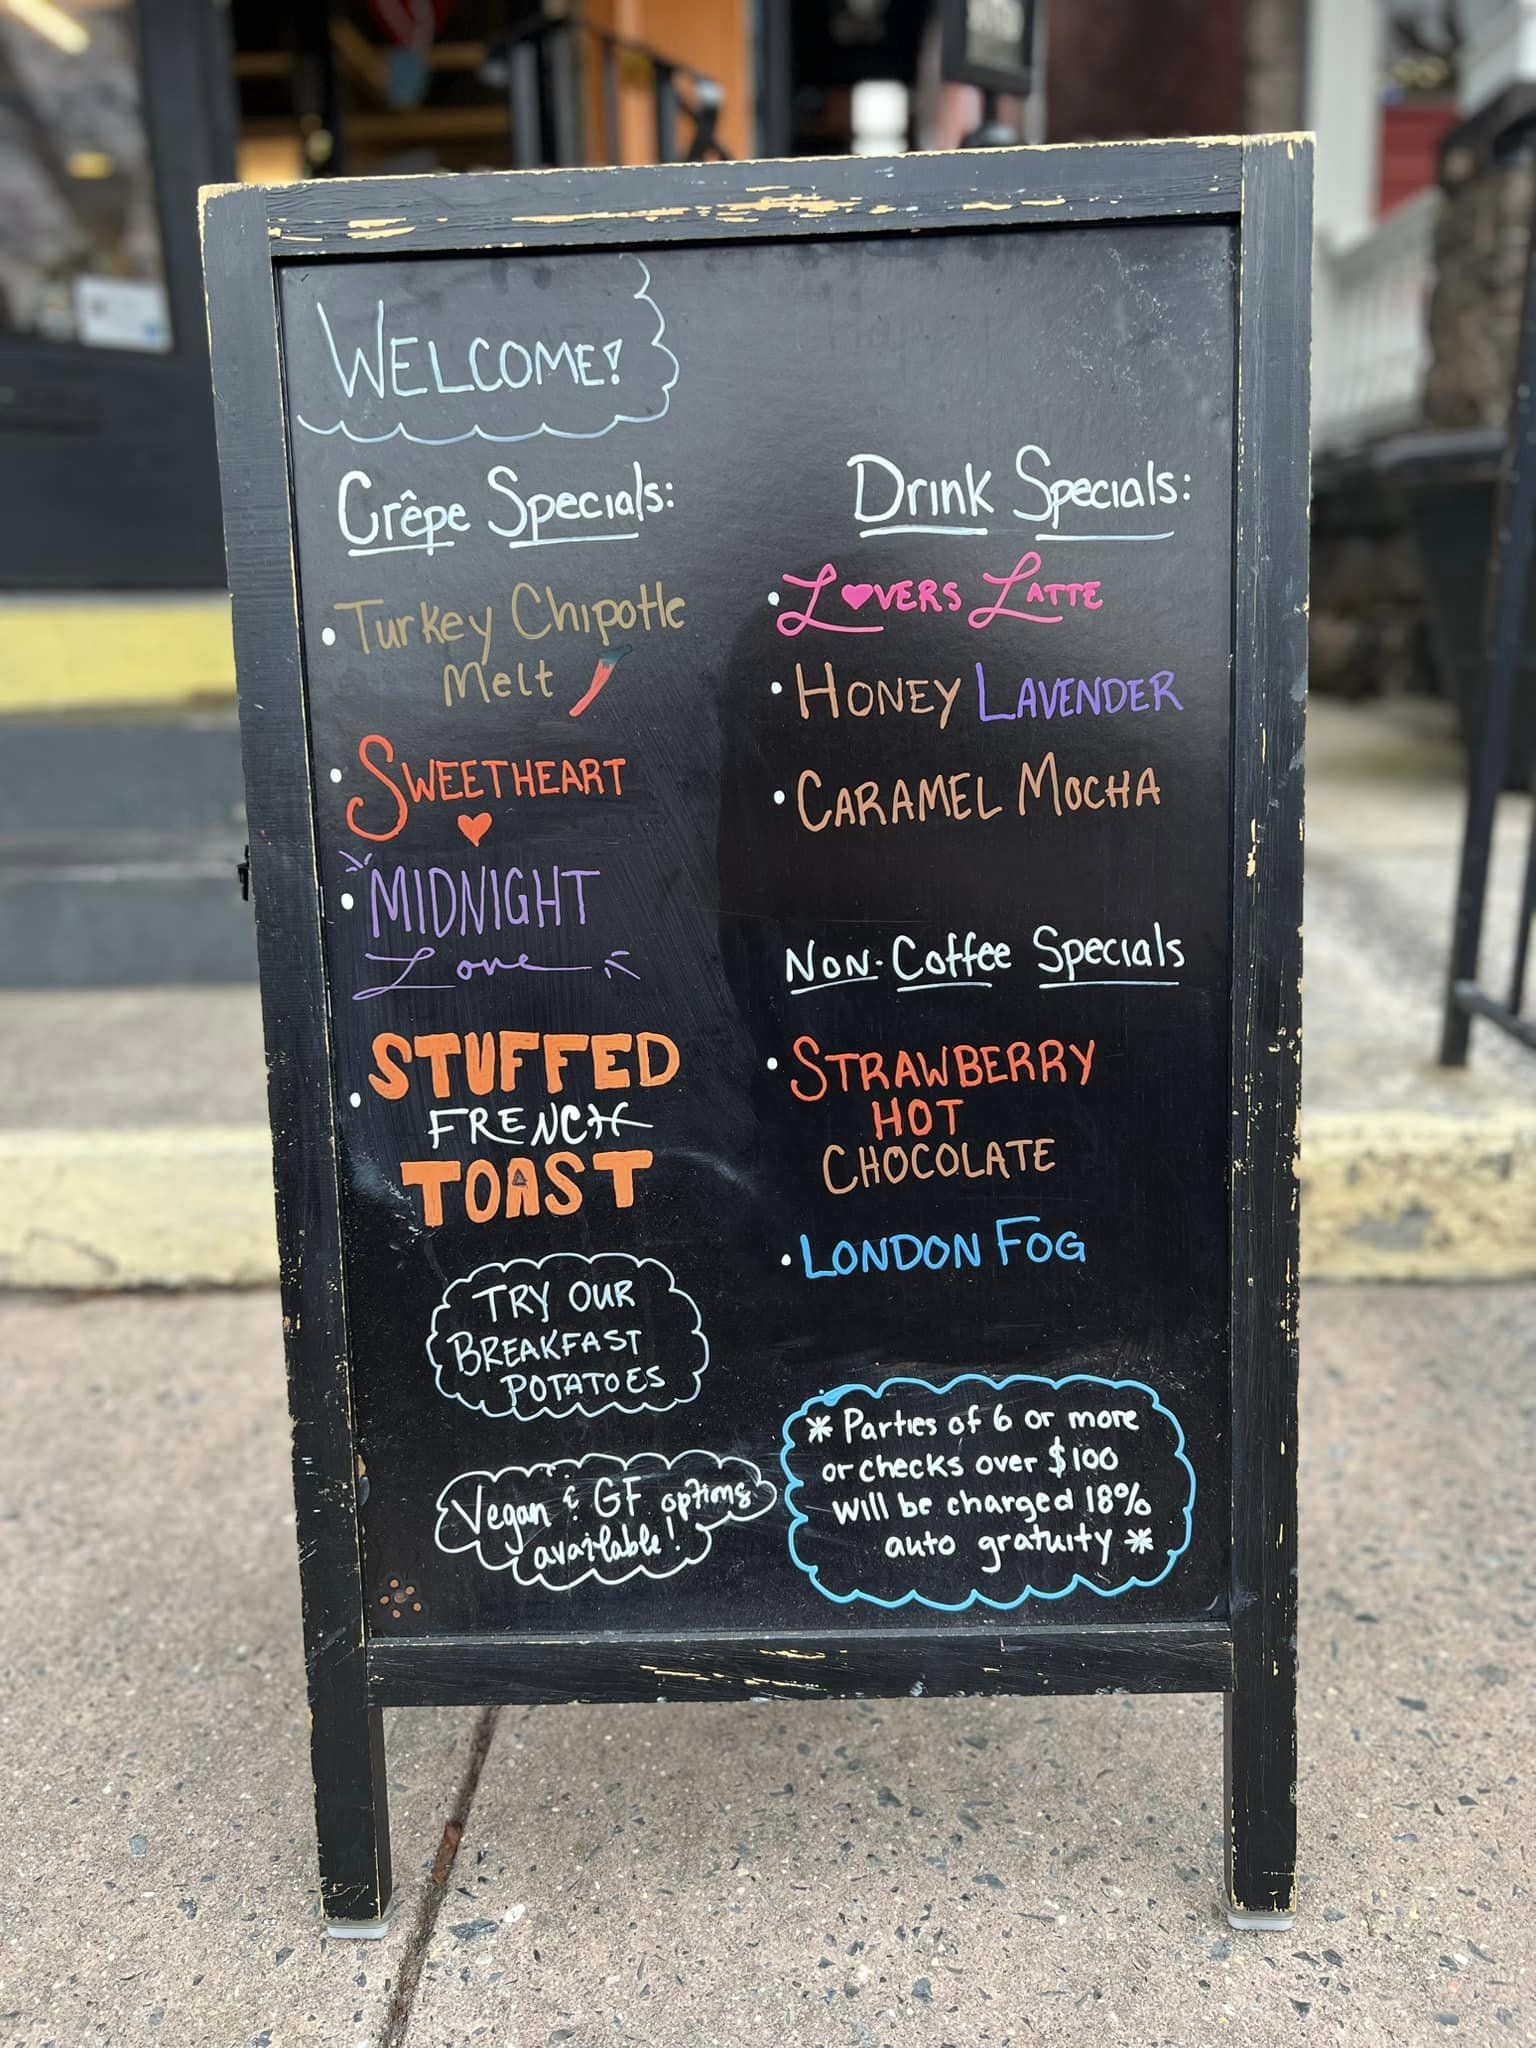 WELCOME!
Crêpe Specials:
• Turkey Chipotle
Melt
• SWEETHEART
• MIDNIGHT
Love
• STUFFED
FRENCH
TOAST
TRY OUR
BREAKFAST
POTATOES
Vegan & GF options
available!
Drink Specials:
• LOVERS LATTE
• HONEY LAVENDER
• CARAMEL MOCHA
NON-Coffee Specials
• STRAWBERRY
HOT
CHOCOLATE
• LONDON FOG
* Parties of 6 or more
or checks over $100
will be charged 18%
auto gratuity *